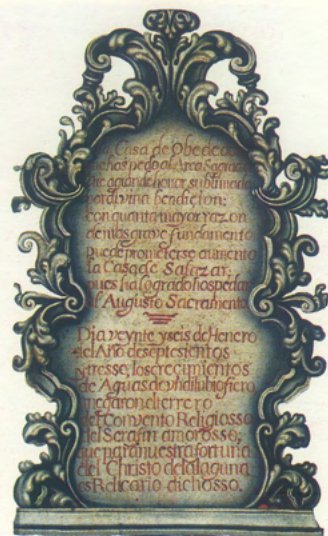 Casa de Obededon
que hospedo al Arca Sagrada
de grande honor sublimada
por divina bendicion:
con quanta mayor razon
de mas grave fundamento
puede prometerse aumento
la Casa de Salazar,
pues ha logrado hospedar
al Augusto Sacramento
Dia veynte y seis de Henero
del Año de septesientos
y tresse, los crecimientos
de Aguas de vn dilubio fiero
anegaron el terrero
del Convento Religiosso
del Serafin amorosso,
que para nuestra fortuna
del Christo de la laguna
es Relicario dichosso.